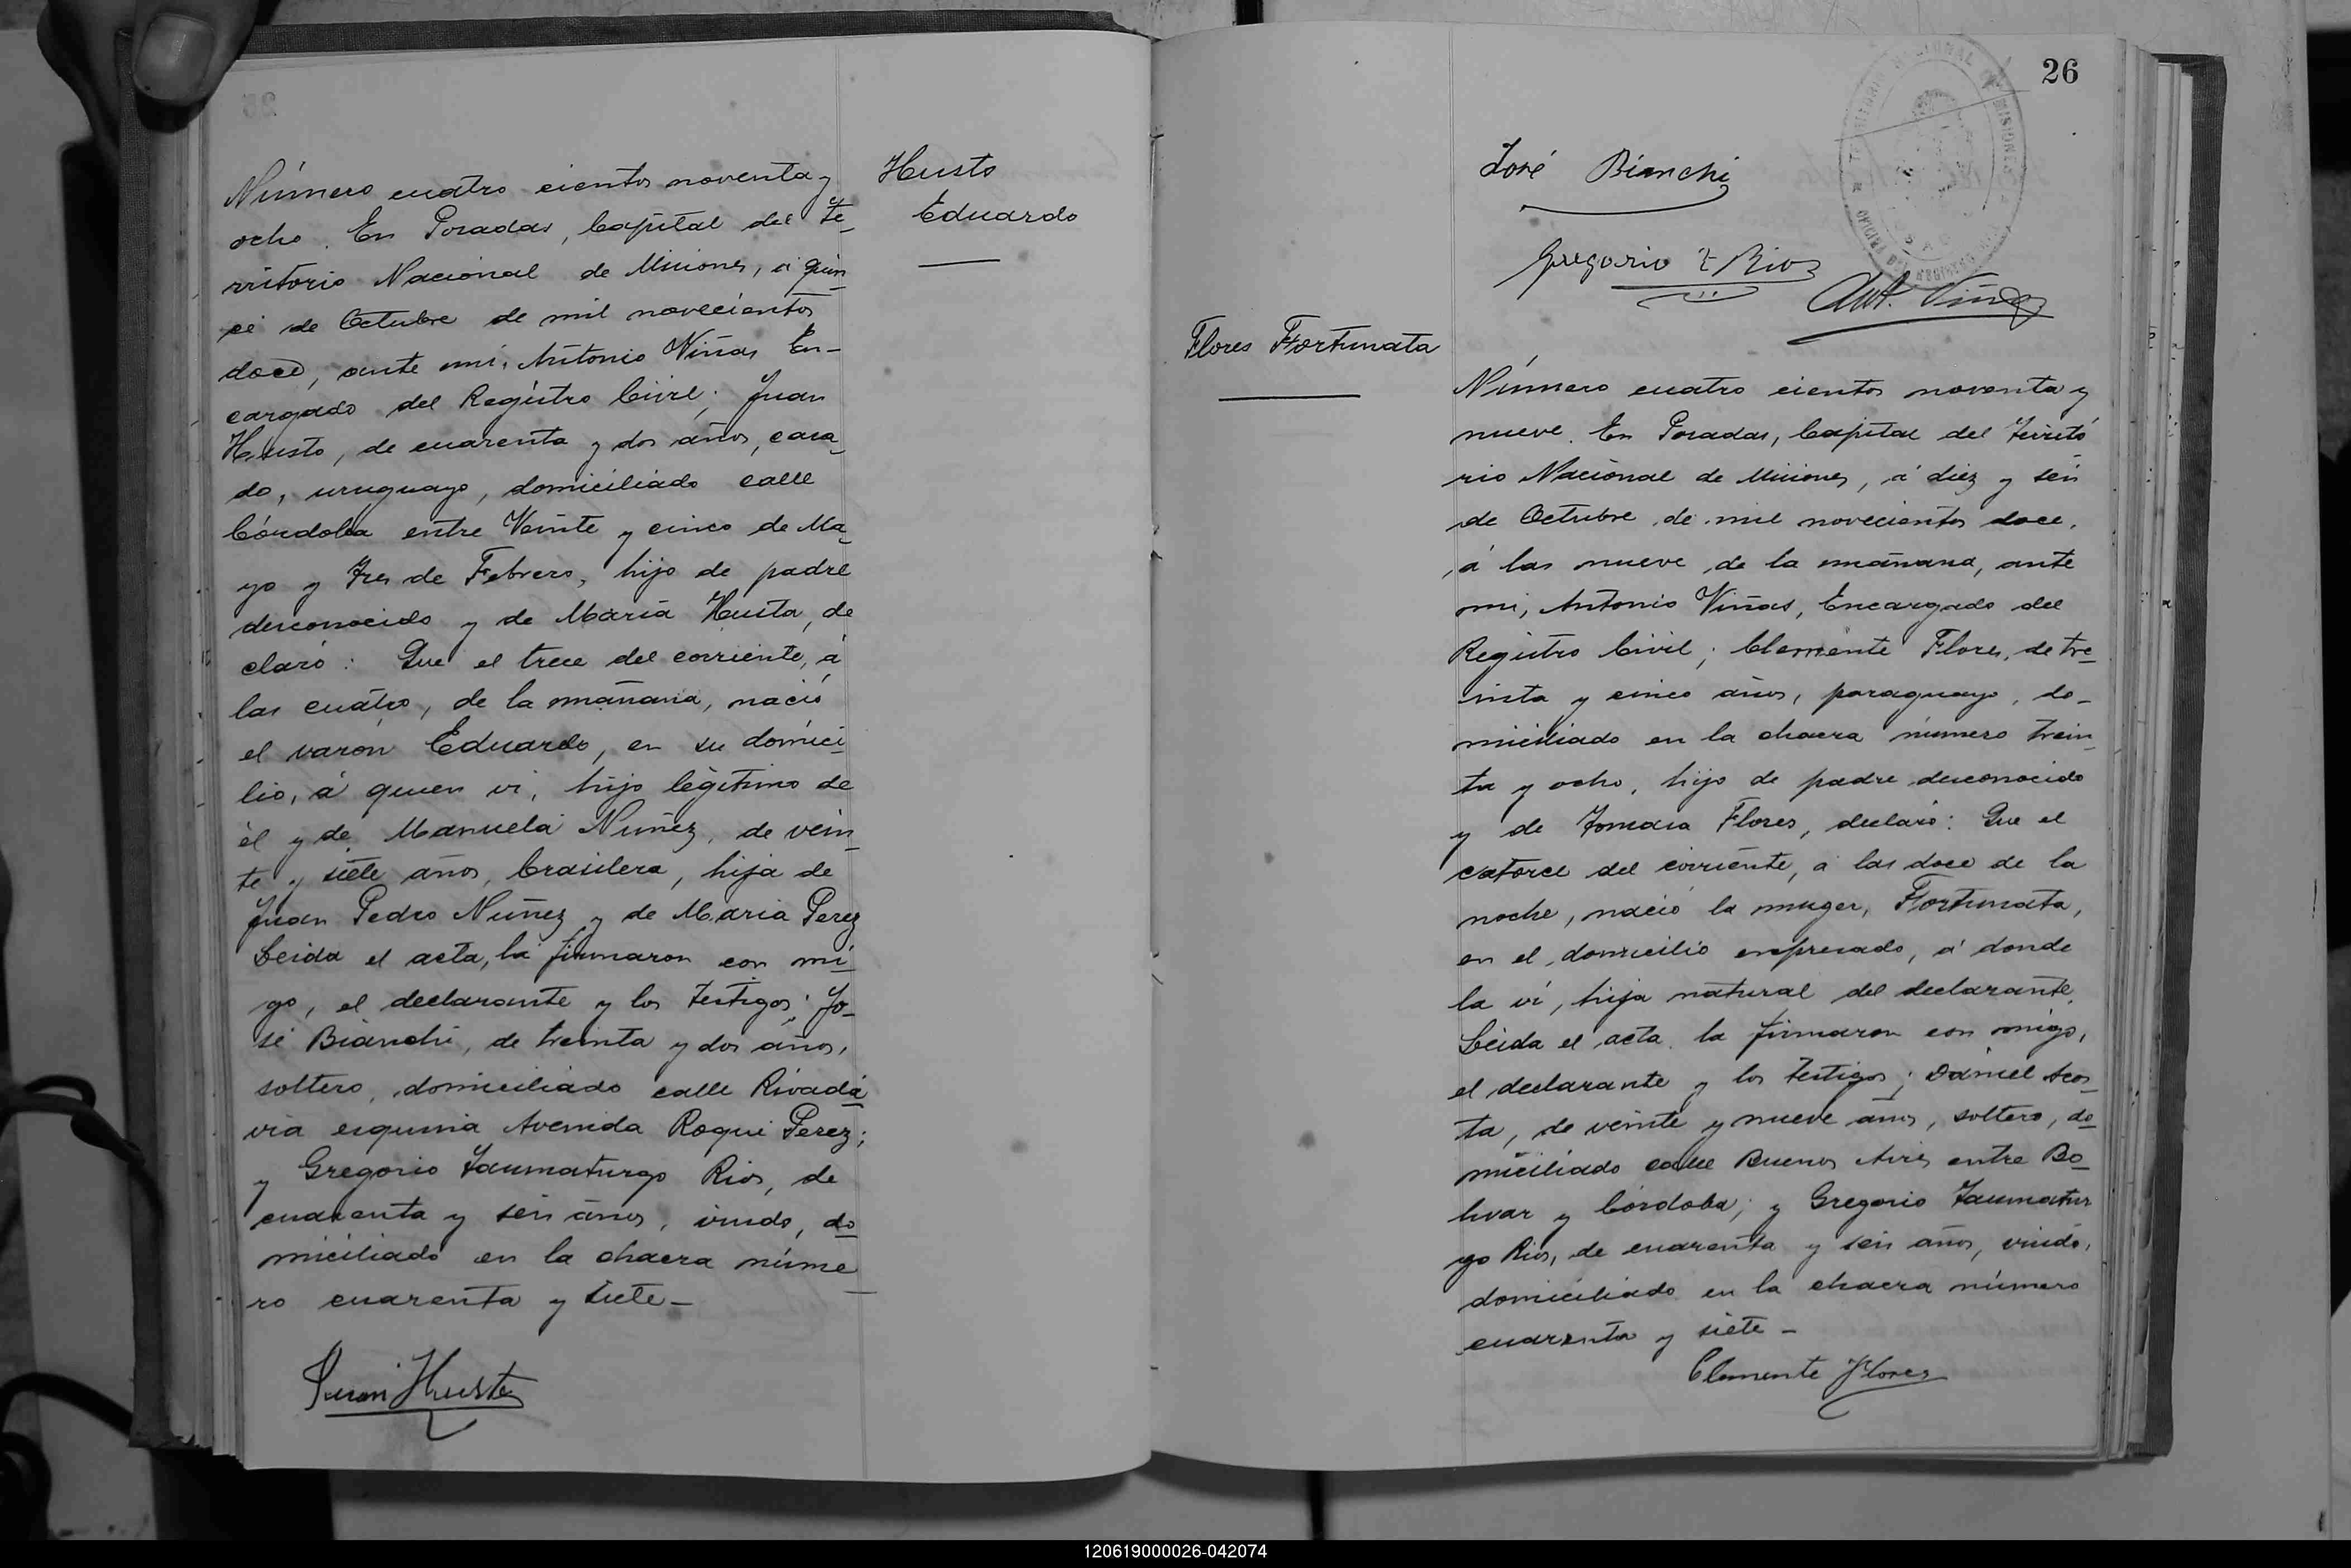 Número cuatro cientos noventa y
ocho. En Posadas, Capital del Te-
rritorio Nacional de Misiones, á quin-
ce de Octubre de mil novecientos
doce, ante mí, Antonio Viñas En-
cargado del Registro Civil; Juan
Husto, de cuarenta y dos años, casa-
do, uruguayo, domiciliado calle
Córdoba entre Veinte y cinco de Ma-
yo y Tres de Febrero, hijo de padre
desconocido y de María Husta, de
claró: Que el trece del corriente, á
las cuatro, de la mañana, nació
el varon Eduardo, en su domici-
lio, á quien ví, hijo legítimo de
él y de Manuela Nuñez, de vein-
te y siete años, brasilera, hija de
Juan Pedro Nuñez y de Maria Perez
Leida el acta, la firmaron con mi-
go, el declarante y los testigos; Jo-
sé Bianchi, de treinta y dos años,
soltero, domiciliado calle Rivada-
via esquina Avenida Roque Perez;
y Gregorio Taumaturgo Rios, de
cuarenta y seis años, viudo, do-
miciliado en la chacra núme-
ro cuarenta y siete-
Juan Husto
Husto
Eduardo
26
José Bianchi
Gregorio T Rios
Ant. Viñas
Flores Fortunata
Número cuatro cientos noventa y
nueve. En Posadas, Capital del Territo-
rio Nacional de Misiones, á diez y seis
de Octubre de mil novecientos doce,
á las nueve de la mañana, ante
mi, Antonio Viñas, Encargado del
Registro Civil; Clemente Flores, de tre-
inta y cinco años, paraguayo, do-
miciliado en la chacra número trein-
ta y ocho, hijo de padre desconocido
y de Tomasa Flores, declaró: Que el
catorce del corriente, á las doce de la
noche, nació la muger, Fortunata,
en el domicilio expresado, á donde
la ví, hija natural del declarante.
Leida el acta la firmaron con migo,
el declarante y los testigos; Daniel Acos-
ta, de veinte y nueve años, soltero, do-
miciliado calle Buenos Aires entre Bo-
livar y Córdoba; y Gregorio Taumatur
go Rios, de cuarenta y seis años, viudo,
domiciliado en la chacra número
cuarenta y siete-
Clemente Flores
120619000026-042074